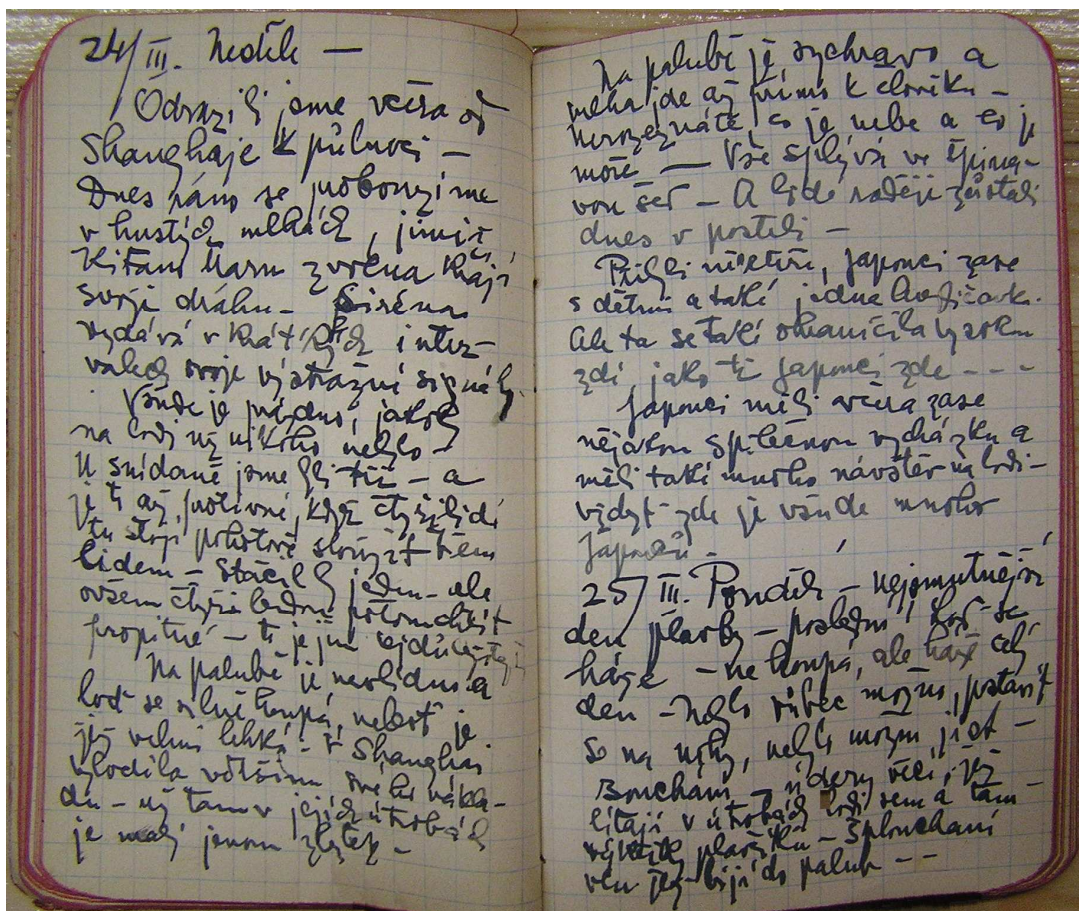 24/III. Neděle —
Odrazili jsme včera od
Shanghaje k půlnoci —
Dnes ráno se probouzíme
v hustých mlhách, jimiž
Kitano Maru zvolna krájí
svoji dráhu — Siréna
vydává v krátkých inter-
valech svoje výstražné signály.
Všude je prázdno, jakoby
na lodi už nikoho nebylo —
U snídaně jsme byli tři — a
je to až protivné, když čtyři lidé
tu stojí pohotově sloužit třem
lidem — stačil by jeden — ale
ovšem čtyři budou potom chtít
propitné — to je jim
Na palubě je nevlídno a
loď se silně houpá, neboť je
již velmi lehká — v Shanghai
vylodila většinu svého nákla-
du — už tam v jejích útrobách
je malý jenom zbytek —
Na palubě je sychravo a
mlha jde až přímo k člověku —
nerozeznáte, co je nebe a co je
moře — Vše splývá ve špina-
vou šeď — A lidé raději zůstali
dnes v posteli —
Přibyli někteří, Japonci zase
s dětmi a také jedna Angličanka.
Ale ta se také ohraničila vysokou
zdí, jako ti Japonci zde - - -
Japonci měli včera zase
nějakou společnou vycházku a
měli také mnoho návštěv na lodi —
vždyť zde je všude mnoho
Japonců —
25/III. Pondělí — nejsmutnější
den plavby — poslední! Loď se
háže — ne houpá, ale háže celý
den — Nebylo vůbec možno postavit
se na nohy, nebylo možno jíst —
Bouchání — údery věcí, jež
lítají v útrobách lodi sem a tam —
výkřiky plavčíků — Šplouchání
vln, jež bijí do palub - -